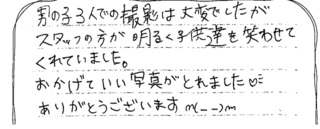 男の子3人での撮影は大変でしたが
スタッフの方が明るく子供達を笑わせて
くれていました。
おかげでいい写真がとれました♡
ありがとうございますm(__)m